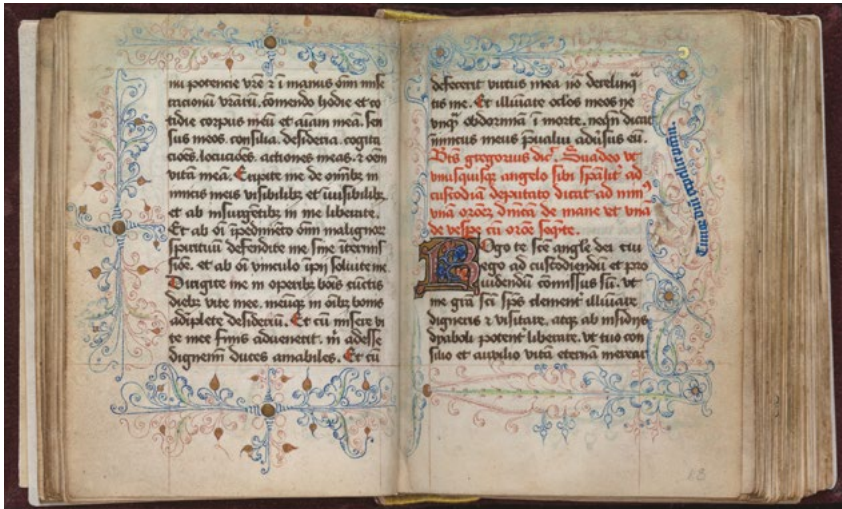 nu potencie vr̄e ⁊ ī manus om̄i mise
racionū vr̄arū. comendo hodie et co
tidie corpus meū et aīam meā. sen
sus meos. consilia. desideria. cogita
cōes. locucōes. actiones meas. ⁊ oēm
vitā meā. Eripite me de om̄ibꝫ in
imicis meis visibilibꝫ et īuisibilibꝫ
et ab insurgētibꝫ in me liberate.
Et ab oī īpedimēto om̄i malignoꝝ
spirituū defendite me sine itermis
sioe. et ab oī vinculo īpii soluite me
Dirigite me in operibꝫ bōis cūctis
diebꝫ vite mee. meūqꝫ in oībꝫ bonis
adīplete desideriū. Et cū misere vi
te mee finis aduenerit. m̄ adesse
dignem̄ duces amabiles. Et cū
defecerit virtus mea nō derelinq̄
tis me. Et illuīate oclos meos ne
vnq̄ obdormiā ī morte. neqn̄ dicat
inimicus meus p̄ualui adūsus eū.
Bt̄s gregorius dic͛. Suadeo vt
vnusquisqꝫ angelo sibi sp̄alit͛ ad
custodiā deputato dicat ad min
vnā orōeꝫ dn̄icā de mane et vnā
de vespe cū orōe seq̄te.
Rogo te sc̄e angle dei cui
ego ad custodiendū et pro
uidendū comissus sū. vt
me grā sc̄i sp̄s clement͛ illuīare
digneris ⁊ visitare. atqꝫ ab īnsidiis
dyaboli potent͛ liberare. vt tuo con
silio et auxilio vitā eternā merear